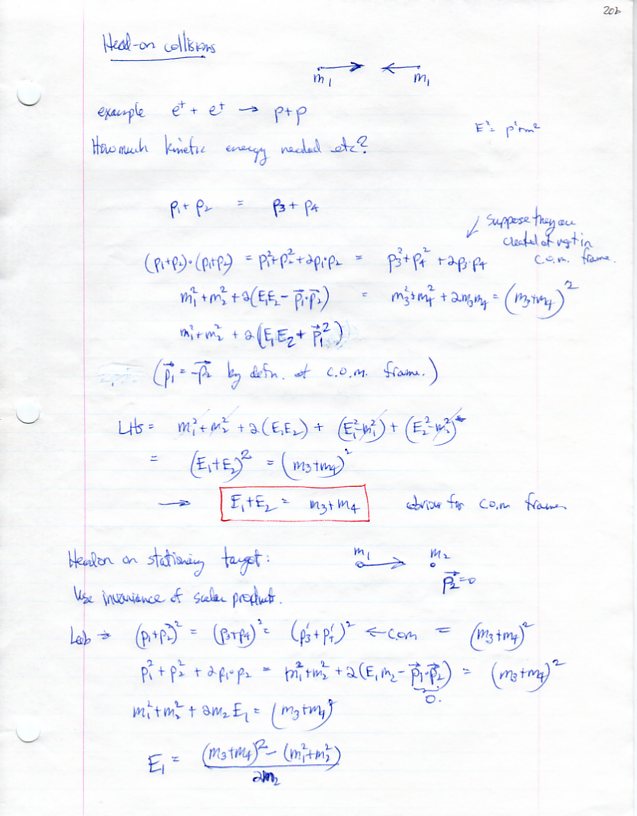 206
Head-on collisions
m₁ m₁
example e⁺ + e⁺ → p+p
E² = p²+m²
How much kinetic energy needed etc?
p₁ + p₂ = p₃ + p₄
suppose they are
created at rest in
c.o.m. frame.
(p₁+p₂)·(p₁+p₂) = p₁²+p₂²+2p₁·p₂ = p₃²+p₄²+2p₃·p₄
m₁²+m₂²+2(E₁E₂ - p⃗₁·p⃗₂) = m₃²+m₄²+2m₃m₄ = (m₃+m₄)²
m₁²+m₂² + 2(E₁E₂ + p⃗₁²)
(p⃗₁ = -p⃗₂ by defn. of c.o.m. frame.)
LHS = m₁²+m₂² + 2(E₁E₂) + (E₁²-m₁²) + (E₂²-m₂²)
= (E₁+E₂)² = (m₃+m₄)²
→ E₁+E₂ = m₃+m₄ obvious for c.o.m frame
Head on on stationary target: m₁ m₂
p⃗₂=0
Use invariance of scalar product.
Lab → (p₁+p₂)² = (p₃+p₄)² = (p₃'+p₄')² ← com = (m₃+m₄)²
p₁²+p₂²+2p₁·p₂ = m₁²+m₂²+2(E₁m₂ - p⃗₁·p⃗₂) = (m₃+m₄)²
0.
m₁²+m₂²+2m₂E₁ = (m₃+m₄)²
E₁ = (m₃+m₄)² - (m₁²+m₂²)
2m₂